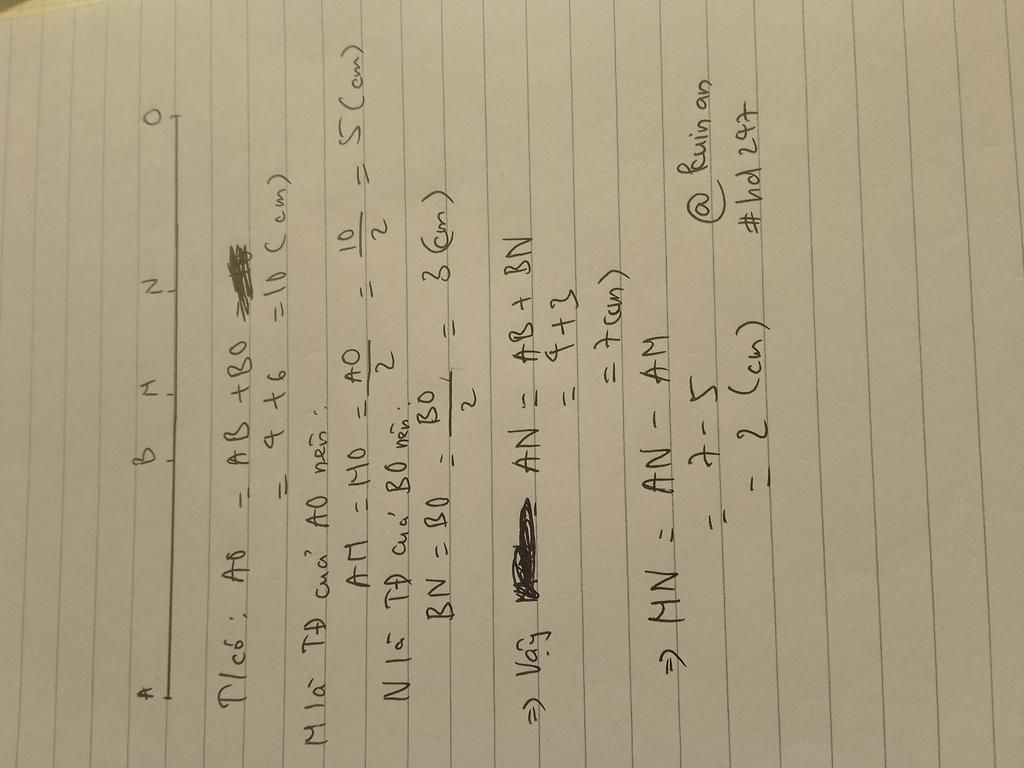 A B M N O
T/có: AO = AB + BO
= 4 + 6 = 10 (cm)
M là TĐ cuả AO nên:
AM = MO = AO/2 = 10/2 = 5 (cm)
N là TĐ cuả BO nên:
BN = BO = BO/2 = 3 (cm)
=> Vậy AN = AB + BN
= 4 + 3
= 7 (cm)
=> MN = AN - AM
= 7 - 5
= 2 (cm)
@Ruinan
#hd247